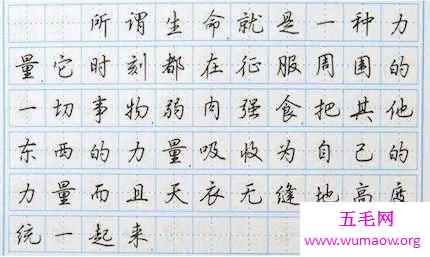 所谓生命就是一种力
量它时刻都在征服周围的
一切事物弱肉强食把其他
东西的力量吸收为自己的
力量而且天衣无缝地高度
统一起来
五毛网
www.wumaow.org